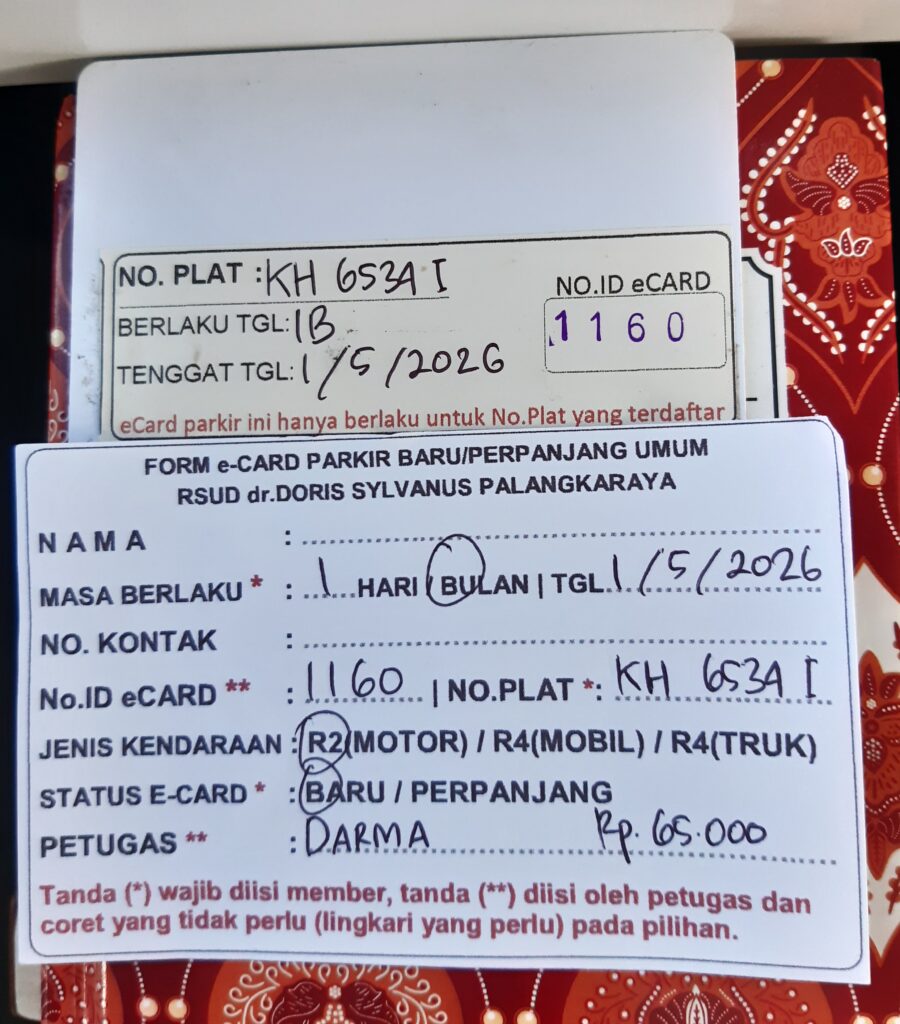 NO. PLAT : KH 6534 I
NO.ID eCARD
BERLAKU TGL: 1B
1160
TENGGAT TGL: 1/5/2026
eCard parkir ini hanya berlaku untuk No.Plat yang terdaftar
FORM e-CARD PARKIR BARU/PERPANJANG UMUM
RSUD dr.DORIS SYLVANUS PALANGKARAYA
N A M A :
MASA BERLAKU * : 1 HARI / BULAN | TGL 1/5/2026
NO. KONTAK :
No.ID eCARD ** : 1160 | NO.PLAT *: KH 6534 I
JENIS KENDARAAN : R2(MOTOR) / R4(MOBIL) / R4(TRUK)
STATUS E-CARD * : BARU / PERPANJANG
PETUGAS ** : DARMA Rp. 65.000
Tanda (*) wajib diisi member, tanda (**) diisi oleh petugas dan
coret yang tidak perlu (lingkari yang perlu) pada pilihan.